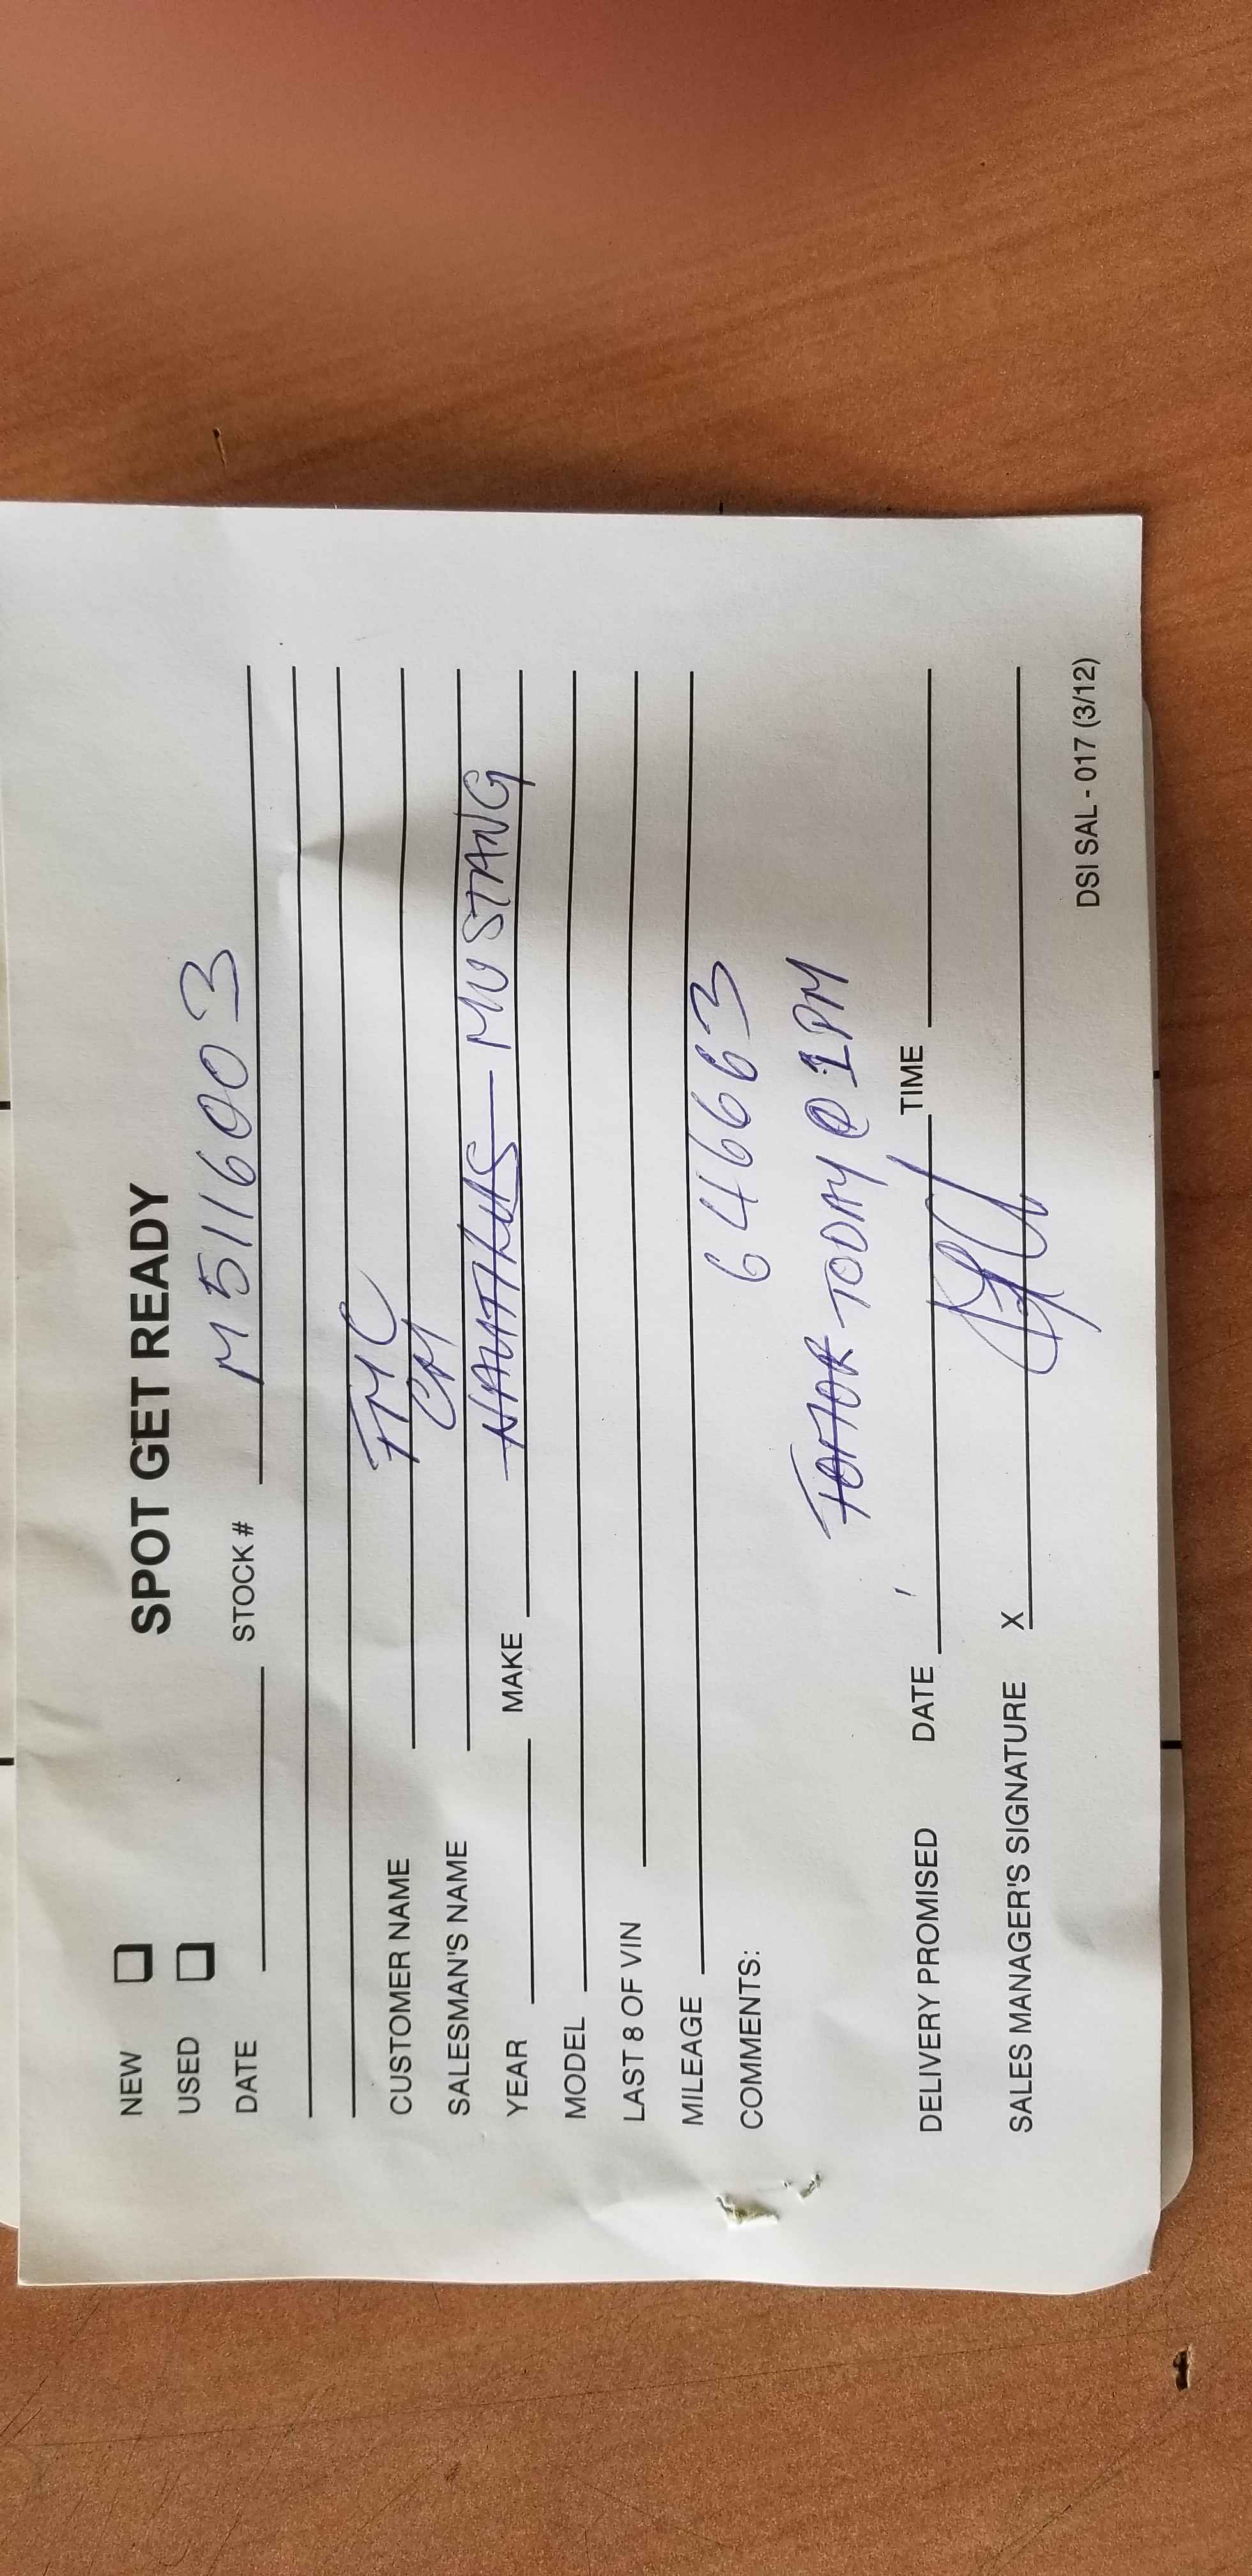 SPOT GET READY
NEW
USED
DATE STOCK # M511603
CUSTOMER NAME FMC
SALESMAN'S NAME CM
YEAR MAKE NAUTILUS MUSTANG
MODEL
LAST 8 OF VIN
MILEAGE
COMMENTS: 646663
TODAY @ 1PM
DELIVERY PROMISED DATE TIME
SALES MANAGER'S SIGNATURE X
DSI SAL - 017 (3/12)